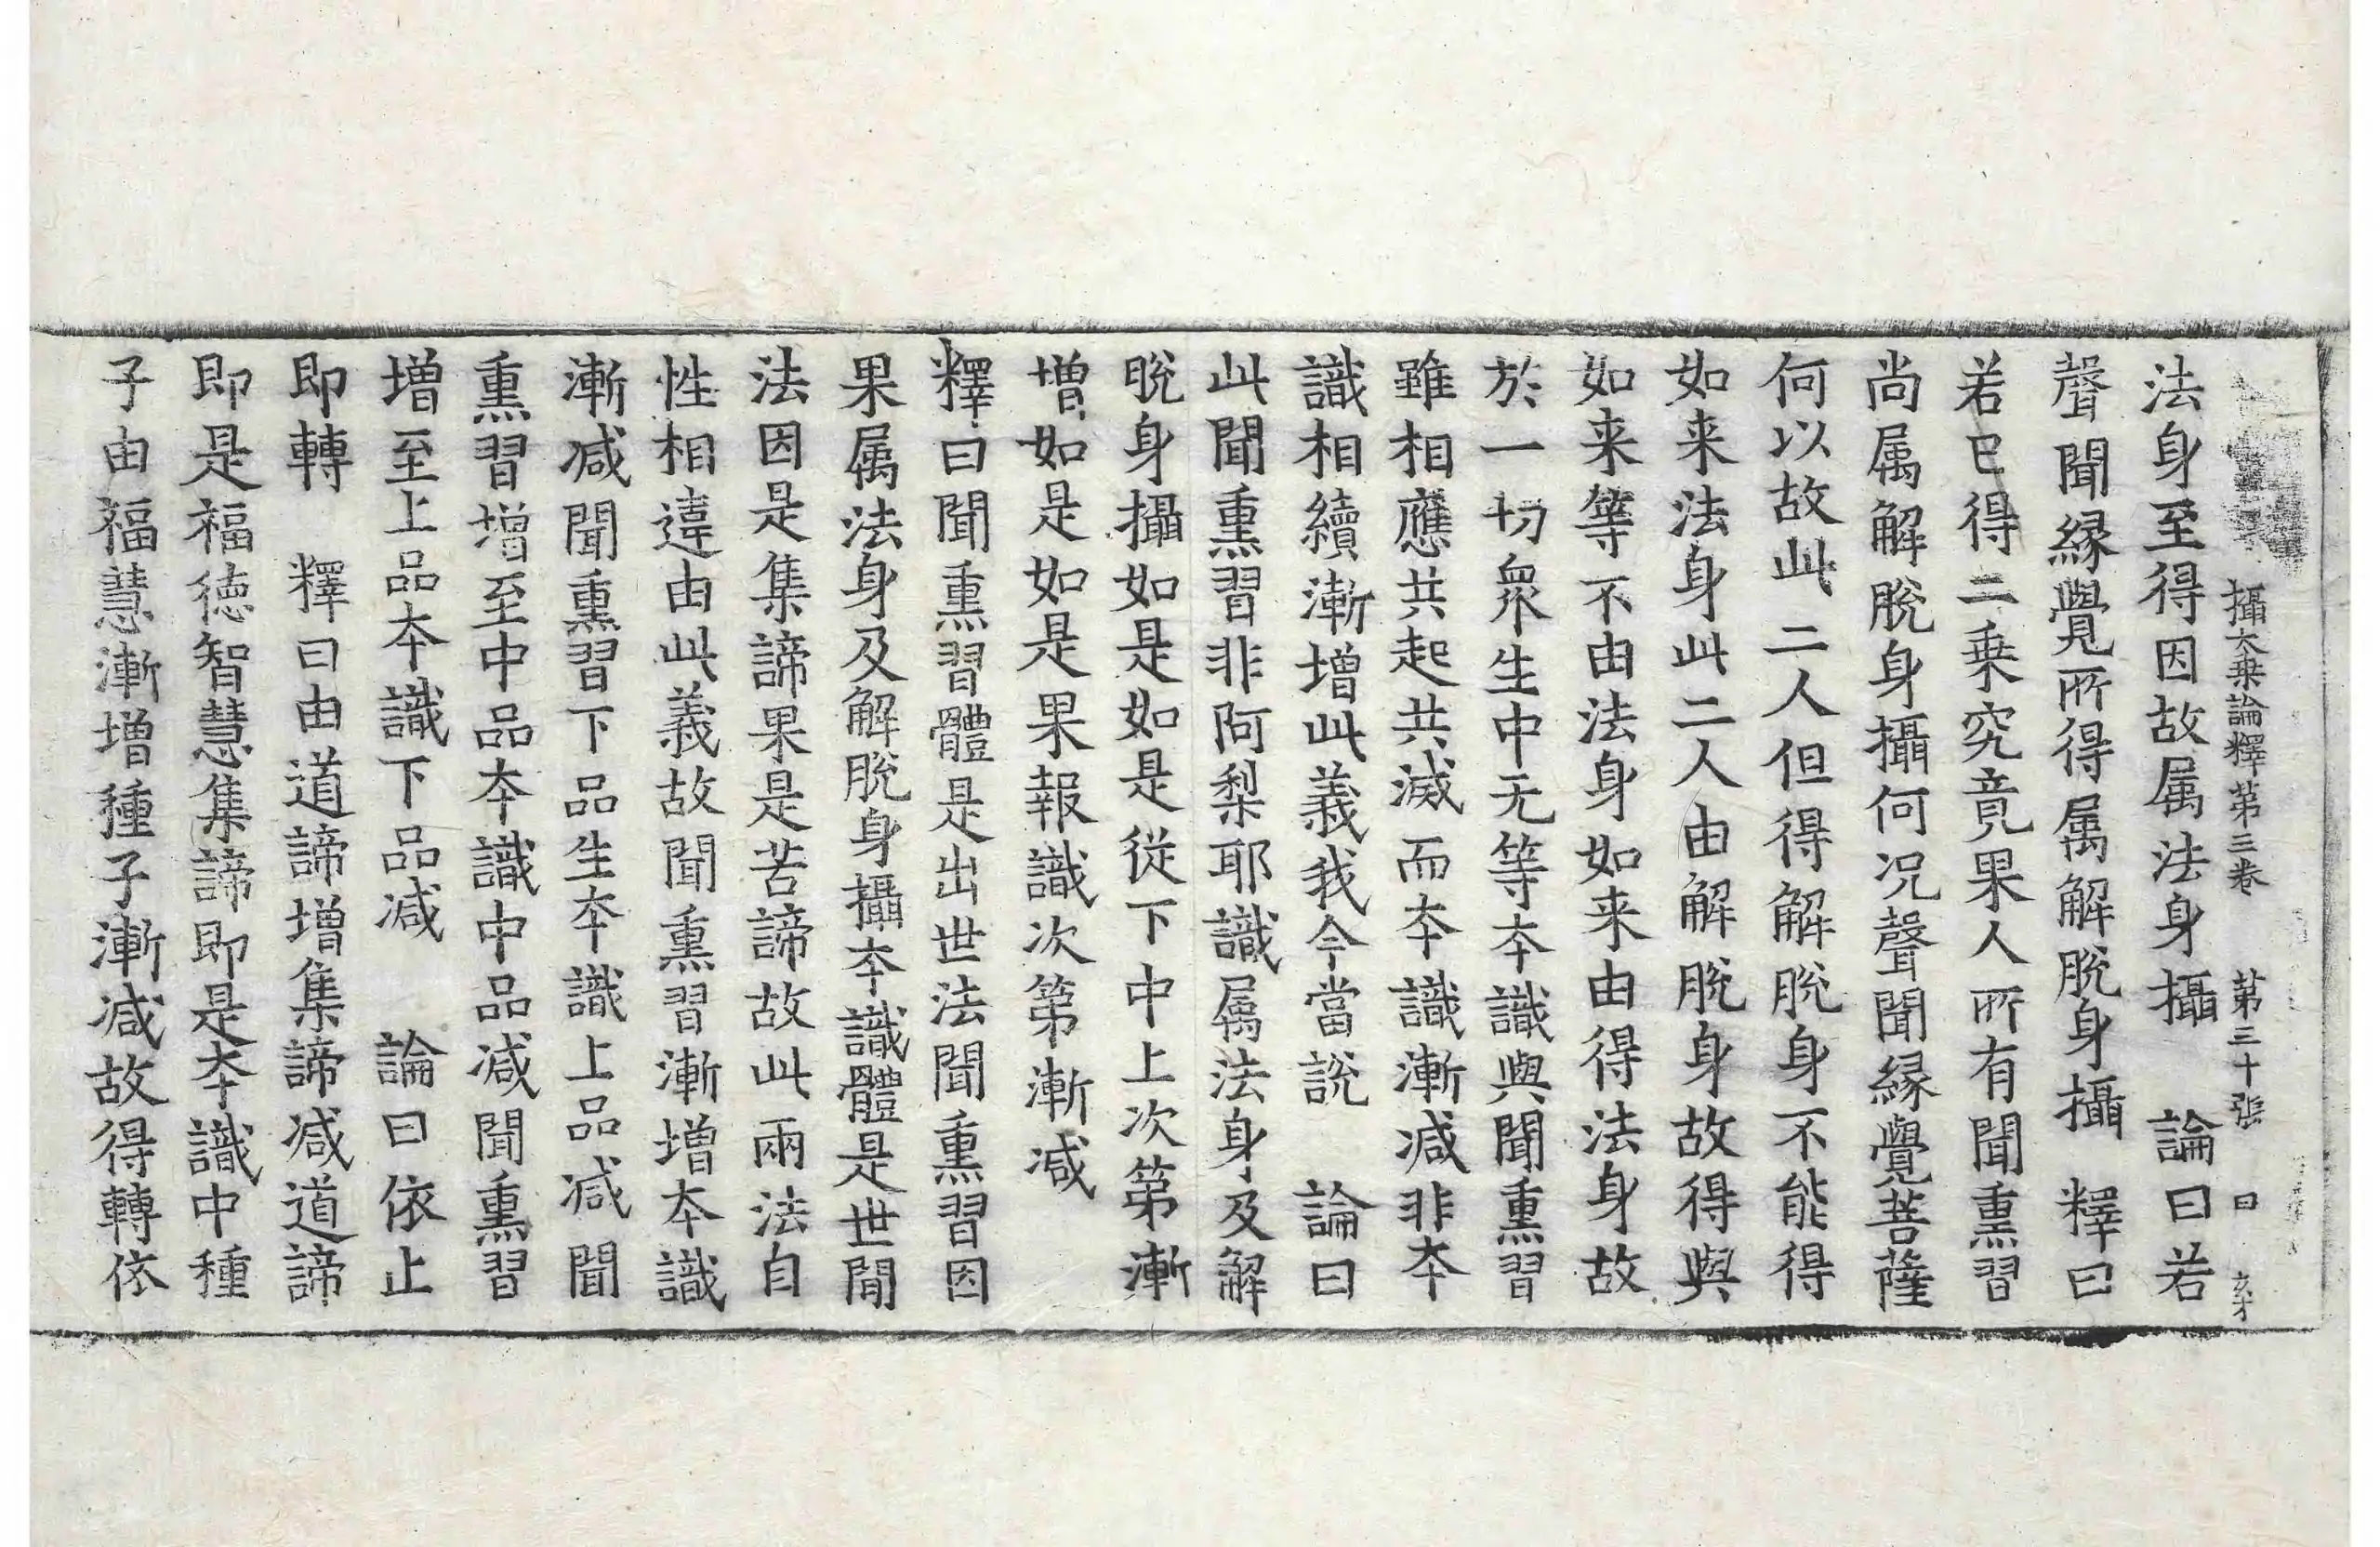 攝大乗論釋第三卷 第三十張 曰
法身至得因故属法身攝 論曰若
聲聞縁覺所得属解脫身攝 釋曰
若已得二乗究竟果人所有聞熏習
尚属解脫身攝何况聲聞縁覺菩薩
何以故此二人但得解脫身不能得
如来法身此二人由解脫身故得與
如来等不由法身如来由得法身故
於一切衆生中无等夲識與聞熏習
雖相應共起共滅而夲識漸减非夲
識相續漸增此義我今當説 論曰
此聞熏習非阿梨耶識属法身及解
脫身攝如是如是從下中上次第漸
增如是如是果報識次第漸减
釋曰聞熏習體是出世法聞熏習因
果属法身及解脫身攝夲識體是世間
法因是集諦果是苦諦故此兩法自
性相違由此義故聞熏習漸增夲識
漸减聞熏習下品生夲識上品减聞
熏習增至中品夲識中品减聞熏習
增至上品夲識下品减 論曰依止
即轉 釋曰由道諦增集諦减道諦
即是福徳智慧集諦即是夲識中種
子由福慧漸增種子漸减故得轉依